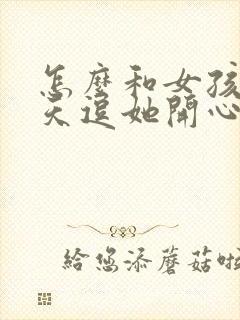 怎麼和女孩
天逗她開心
給您添蘑菇啦